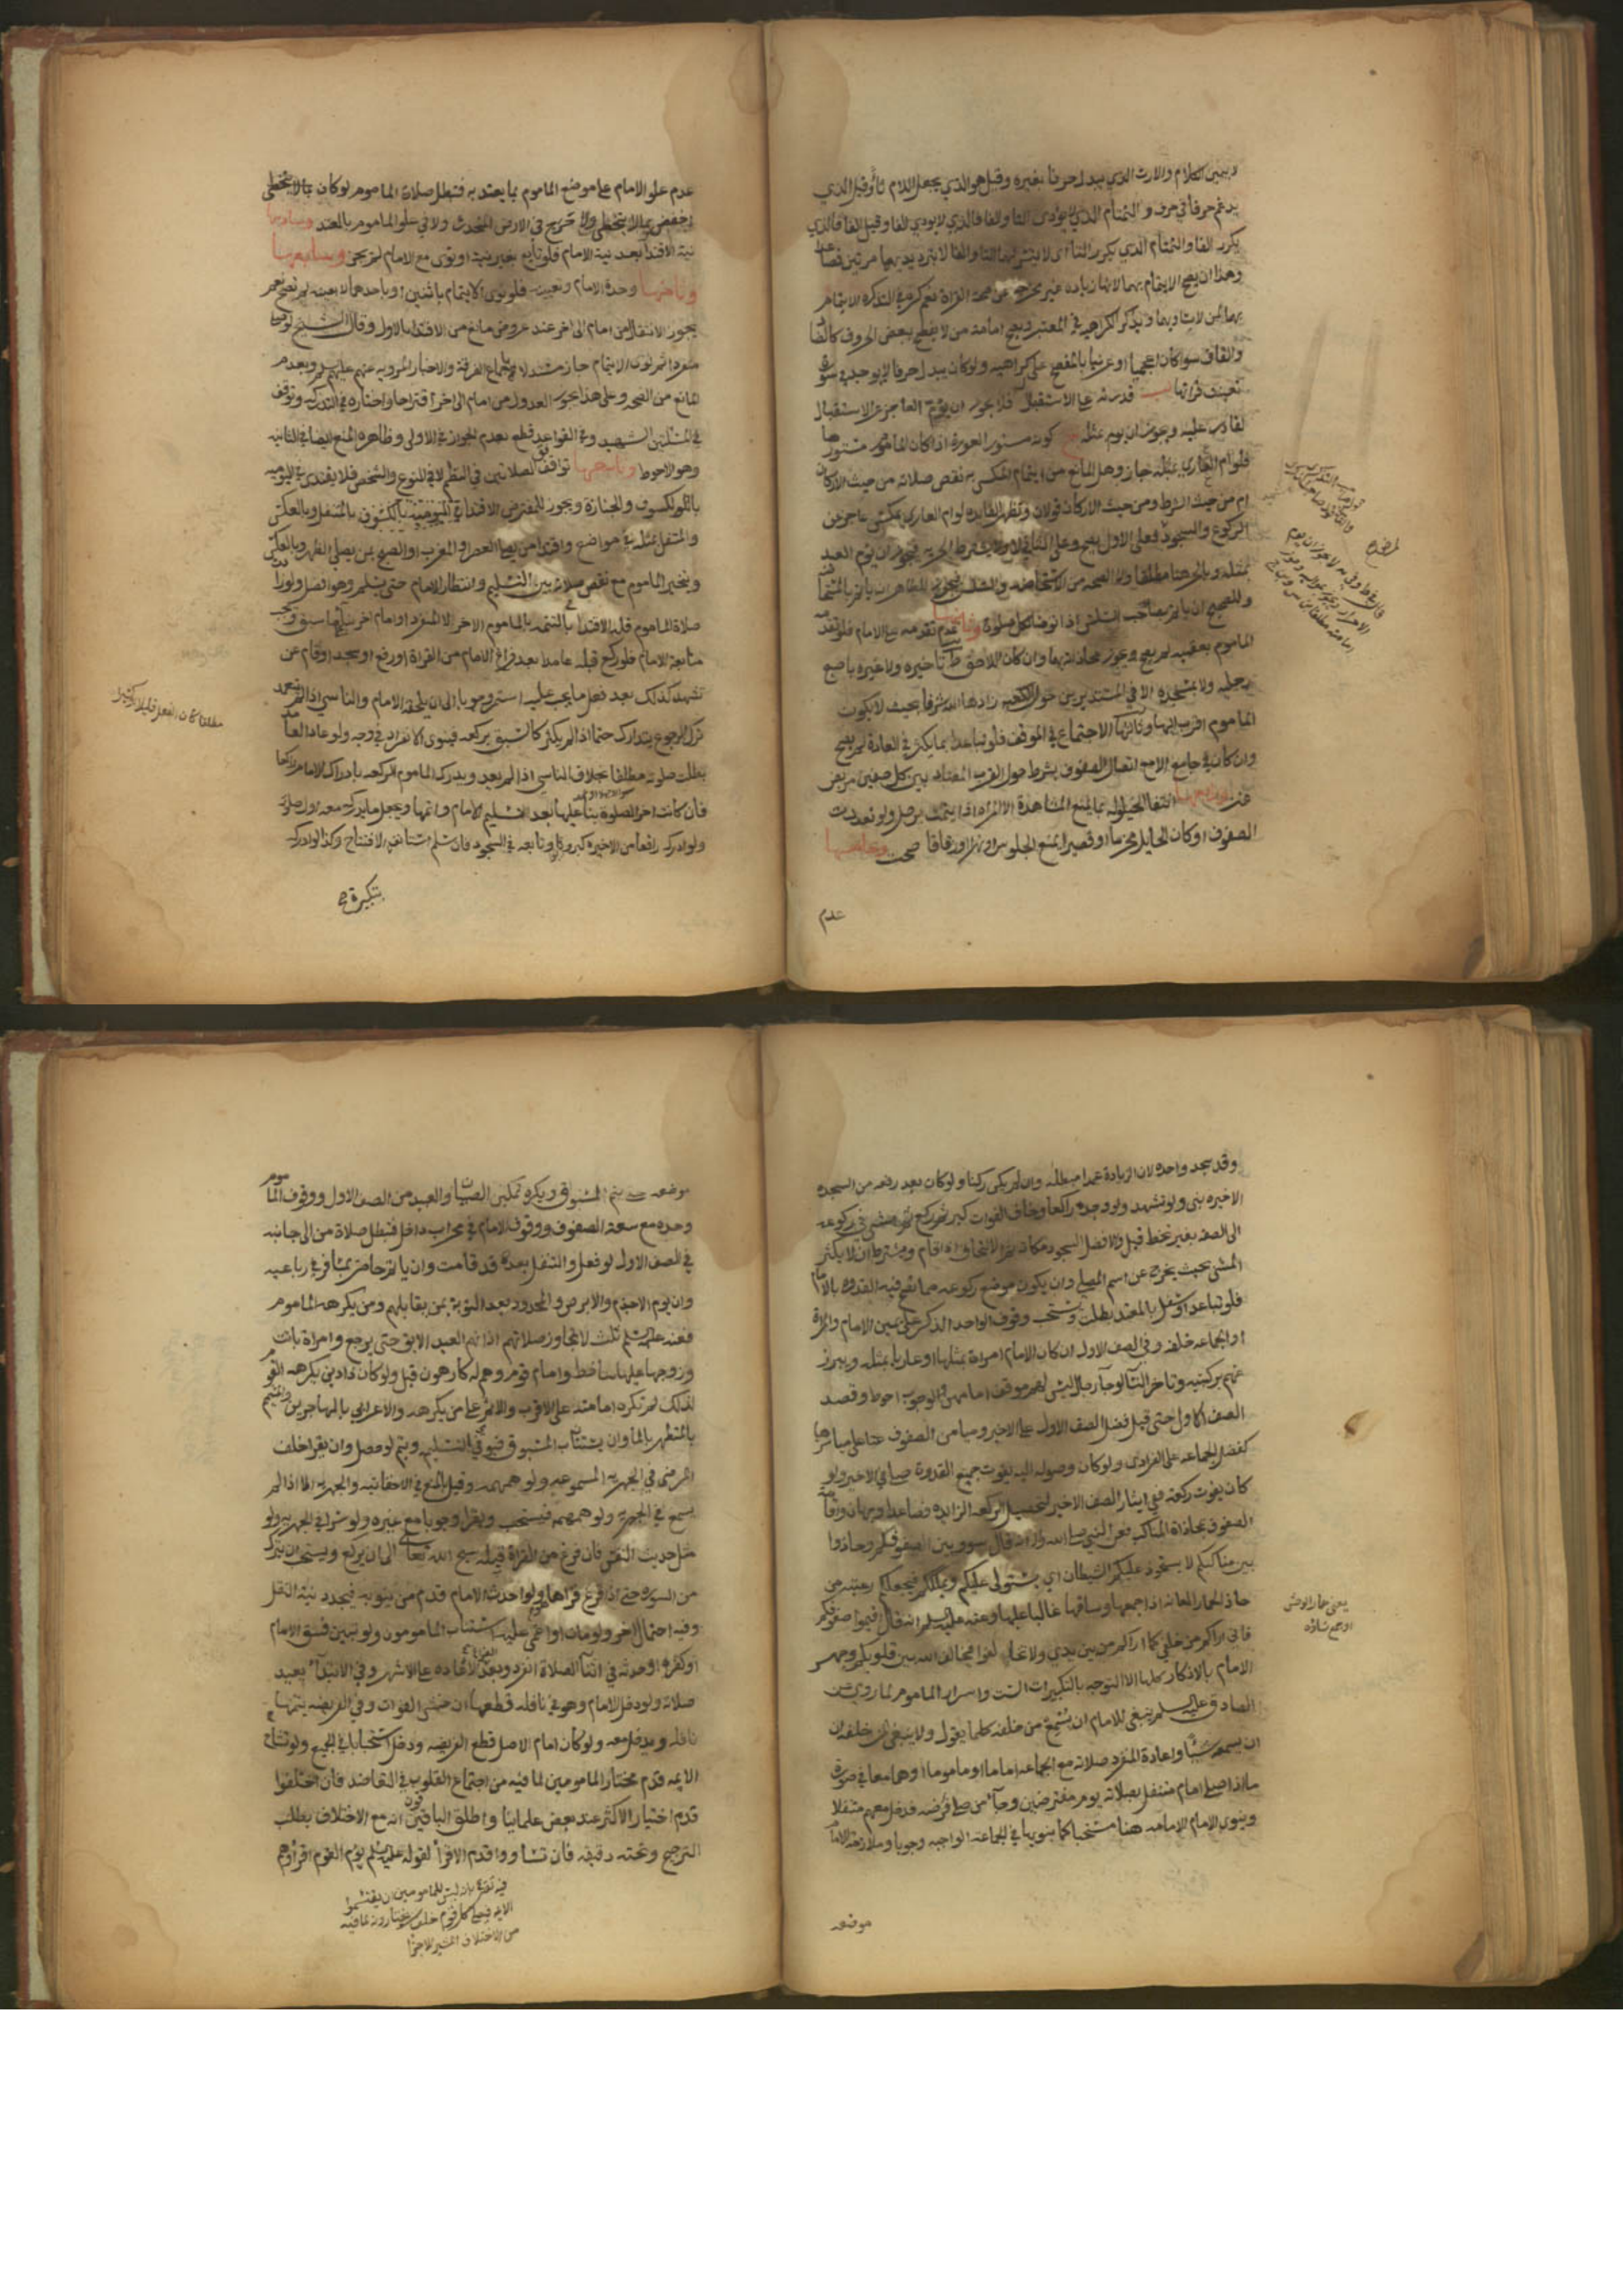 لا يبين الكلام والارت الذي يبدل حرفا بغيره وقيل هو الذي يجعل اللام ثا وقيل الذي
يدغم حرفا في حرف والتمتام الذي لا يؤدي التا والفافا الذي لا يودي الفا وقيل الفافا الذي
يكرر الفا والتمتام الذي يكرر التا اي لا يتيسر لهما التا والفا الا بترديدهما مرتين فصاعدا
وهذان يصح الايتمام بهما لانها زيادة غير مخرجة عن صحة القراة نعم كره في التذكرة الايتمام
بهما لمن لا يساويهما ولم يذكر الكراهية في المعتبر ويصح امامة من لا يفصح ببعض الحروف كالقاف
سواء كان اعجميا او عربيا بالمفصح على كراهية ولو كان يبدل حرفا
قدرته على الاستقبال فلا يجوز ان يؤم العاجز عن الاستقبال
القادر عليه ويجوز ان يؤم مثله كونه مستور العورة اذا كان الماموم مستورها
فلو ام العاري مثله جاز وهل المانع من ايتمام المكتسي به نقص صلاته من حيث الاركان
ام من حيث الشرط ومن حيث الاركان قولان وتظهر الفايدة لو ام العاري مكتس عاجز عن
الركوع والسجود فعلى الاول يصح وعلى الثاني لا ولا يشترط الحرية فيجوز ان يؤم العبد
بمثله وبالحر
وللصحيح ان ياتم بصاحب السلس اذا توضا لكل صلوة وثانيها عدم تقدمه على الامام فلو تقدم
الماموم بعقبه لم يصح ويجوز محاذاته بها وان كان الاحوط تاخيره ولا عبرة باصبع
رجليه ولا بمسجده الا في المستديرين حول الكعبة زادها الله شرفا بحيث لا يكون
الماموم اقرب اليها وثالثها الاجتماع في الموقف فلو تباعدا بما يكثر في العادة لم يصح
وان كان في جامع الا مع اتصال الصفوف بشرط حصول القرب المعتاد بين كل صفين مربض
عنز ورابعها انتفا الحيلولة بما يمنع المشاهدة الا المراة اذا ايتمت برجل ولو تعددت
الصفوف او كان الحايل مخرما او قصيرا يمنع الجلوس او نهرا او زقاقا صحت وخامسها
عدم
عدم علو الامام على موضع الماموم بما يعتد به فتبطل صلاة الماموم لو كان بما لا يتخطى
اخفض بما لا يتخطى ولا حرج في الارض المنحدرة ولا في علو الماموم بالمعتد وسادسها
نية الاقتدا بعد نية الامام فلو تابع بغير نية او نوى مع الامام لم يجز وسابعها
وثامنها وحدة الامام وتعيينه فلو نوى الايتمام باثنين او باحدهما لا بعينه لم تصح نعم
يجوز الانتقال من امام الى اخر عند عروض مانع من الاقتدا بالاول وقال الشيخ لو صلى
منفردا ثم نوى الايتمام جاز مستدلا باجماع الفرقة والاخبار المروية عنهم عليهم السلم وبعدم
المانع من الصحة وعلى هذا يجوز العدول من امام الى اخر اقتراحا واختاره في التذكرة وتوقف
في المسئلتين الشهيد وفي القواعد قطع بعدم الجواز في الاولى وظاهره المنع ايضا في الثانية
وهو الاحوط وتاسعها توافق الصلاتين في النظم لا في النوع والشخص فلا يقتدى في اليومية
بالكسوف والجنازة ويجوز للمفترض الاقتدا في اليومية بالمتنفل وبالعكس
والمتنفل بمثله في مواضع واقتدا من يصلي العصر والمغرب او الصبح بمن يصلي الظهر وبالعكس
ويتخير الماموم مع نقص صلاته بين التسليم وانتظار الامام حتى يسلم وهو افضل ولو زادت
صلاة الماموم فله الاقتدا في التتمة بالماموم الاخر لا المنفرد او امام اخر
متابعة الامام فلو ركع قبله عامدا بعد فراغ الامام من القراة او رفع او سجد او قام عن
تشهد كذلك بعد فعل ما يجب عليه استمر وجوبا الى ان يلحقه الامام والناسي
ترك الرجوع يتدارك حتما اذا لم يكثر كالسبق بركعة فينوي الانفراد في وجه ولو عاد العامد
بطلت صلوته مطلقا بخلاف الناسي اذا لم يعد ويدرك الماموم الركعة بادراك الامام راكعا
فان كانت اخر الصلوة بنا عليها بعد تسليم الامام واتمها ويجعل ما يدركه معه اول صلوته
ولو ادركه رافعا من الاخيرة كبر وتابعه في السجود فان سلم استانف الافتتاح وكذا لو ادركه
بتكبيرة
وقد سجد واحدة لان الزيادة عمدا مبطلة وان لم يكن ركنا ولو كان بعد رفعه من السجدة
الاخيرة بنى ولو تشهد ولو وجده راكعا وخاف الفوات كبر ثم ركع ثم مشى في ركوعه
الى الصف بغير تخط قيل والافضل السجود مكانه ثم الالتحاق اذا قام ويشترط ان لا يكثر
المشي بحيث يخرج عن اسم المصلي وان يكون موضع ركوعه مما تصح فيه القدوة بالامام
فلو تباعد او سفل بالمعتد بطلت ويستحب وقوف الواحد الذكر على يمين الامام والمراة
او الجماعة خلفه وفي الصف الاول ان كان الامام امراة بمثلها او عاريا بمثله ويبرز
عنهم بركبتيه وتاخر النسا لو جا رجال ليس لهم موقف امامهن والوجوب احوط وقصد
الصف الاول حتى قيل فضل الصف الاول على الاخير وميامن الصفوف على مياسرها
كفضل الجماعة على الفرادى ولو كان وصوله اليه يفوت جميع القدوة صلى في الاخير ولو
كان يفوت ركعة ففي ايثار الصف الاخير لتحصيل الركعة الزايدة فصاعدا وجهان واقامة
الصفوف بمحاذاة المناكب فعن النبي صلى الله عليه واله انه قال سووا بين صفوفكم وحاذوا
بين مناكبكم لا يستحوذ عليكم الشيطان اي يستولى عليكم ويملككم فيجعلكم رعيته من
حاذ الحمار العانة اذا جمعها وساقها غالبا عليها وعنه عليه السلم انه قال اقيموا صفوفكم
فاني اراكم من خلفي كما اراكم من بين يدي ولا تخالفوا فيخالف الله بين قلوبكم وجهر
الامام بالاذكار كلها الا التوجه بالتكبيرات الست واسرار الماموم لما روي عن
الصادق عليه السلم ينبغي للامام ان يسمع من خلفه كلما يقول ولا ينبغي لمن خلفه ان
يسمعه شيئا واعادة المنفرد صلاته مع الجماعة اماما او ماموما وهما معا في صورة
ما اذا صلى امام متنفل بصلاته بقوم مفترضين وجا من صلى فرضه فدخل معهم متنفلا
وينوي الامام الامامة هنا مستحبا كما ينويها في الجماعة الواجبة وجوبا وملازمة الامام
موضعه
يعني حمار الوحش
موضعه حتى يتم المسبوق ويكره تمكين الصبيان والعبيد من الصف الاول ووقوف الماموم
وحده مع سعة الصفوف ووقوف الامام في محراب داخل فتبطل صلاة من الى جانبه
في الصف الاول لو فعل والتنفل بعد قد قامت وان ياتم حاضر بمسافر في رباعية
وان يؤم الاجذم والابرص والمحدود بعد التوبة بمن يقابلهم ومن يكرهه الماموم
فعنه عليه السلم ثلث لا تجاوز صلاتهم اذانهم العبد الابق حتى يرجع وامراة باتت
وزوجها عليها ساخط وامام قوم وهم له كارهون قيل ولو كان ذا دين يكرهه القوم
لذلك لم تكره امامته على الاقرب والاثم على من يكرهه والاعرابي بالمهاجرين والمتيمم
بالمتطهر بالما وان يستناب المسبوق فيومي بالتسليم ويتم لو حصل وان يقرا خلف
المرضي في الجهرية المسموعة ولو همهمة وقيل بالمنع في الاخفاتية والجهرية الا اذا لم
يسمع في الجهرية ولو همهمة فيستحب ويقرا وجوبا مع غيره ولو سرا في الجهرية ولو
مثل حديث النفس فان فرغ من القراة قبله سبح الله تعالى الى ان يركع ويستحب ان يترك
من السورة حتى اذا فرغ قراها ولو احدث الامام قدم من ينوبه فيجدد نية النقل
وفيه احتمال اخر ولو مات او اغمي عليه استناب المامومون ولو تبين فسق الامام
او كفره او حدثه في اثنا الصلاة انفرد وبعد الفراغ لا اعادة على الاشهر وفي الابتدا يعيد
صلاته ولو دخل الامام وهو في نافلة قطعها ان خشى الفوات وفي الفريضة يتمها
نافلة ويدخل معه ولو كان امام الاصل قطع الفريضة ودخل استحبابا في الجميع ولو تشاح
الايمة قدم مختار المامومين لما فيه من اجتماع القلوب في التعاضد فان اختلفوا
قدم اختيار الاكثر عند بعض علماينا واطلق الباقون انه مع الاختلاف يطلب
الترجيح وتحته دقيقة فان تساووا قدم الاقرا لقوله عليه السلم يؤم القوم اقراوهم
فيه تصريح بانه ليس للمامومين ان يقتسموا
الايمة فيصلي كل قوم خلف من يختارونه لما فيه
من الاختلاف